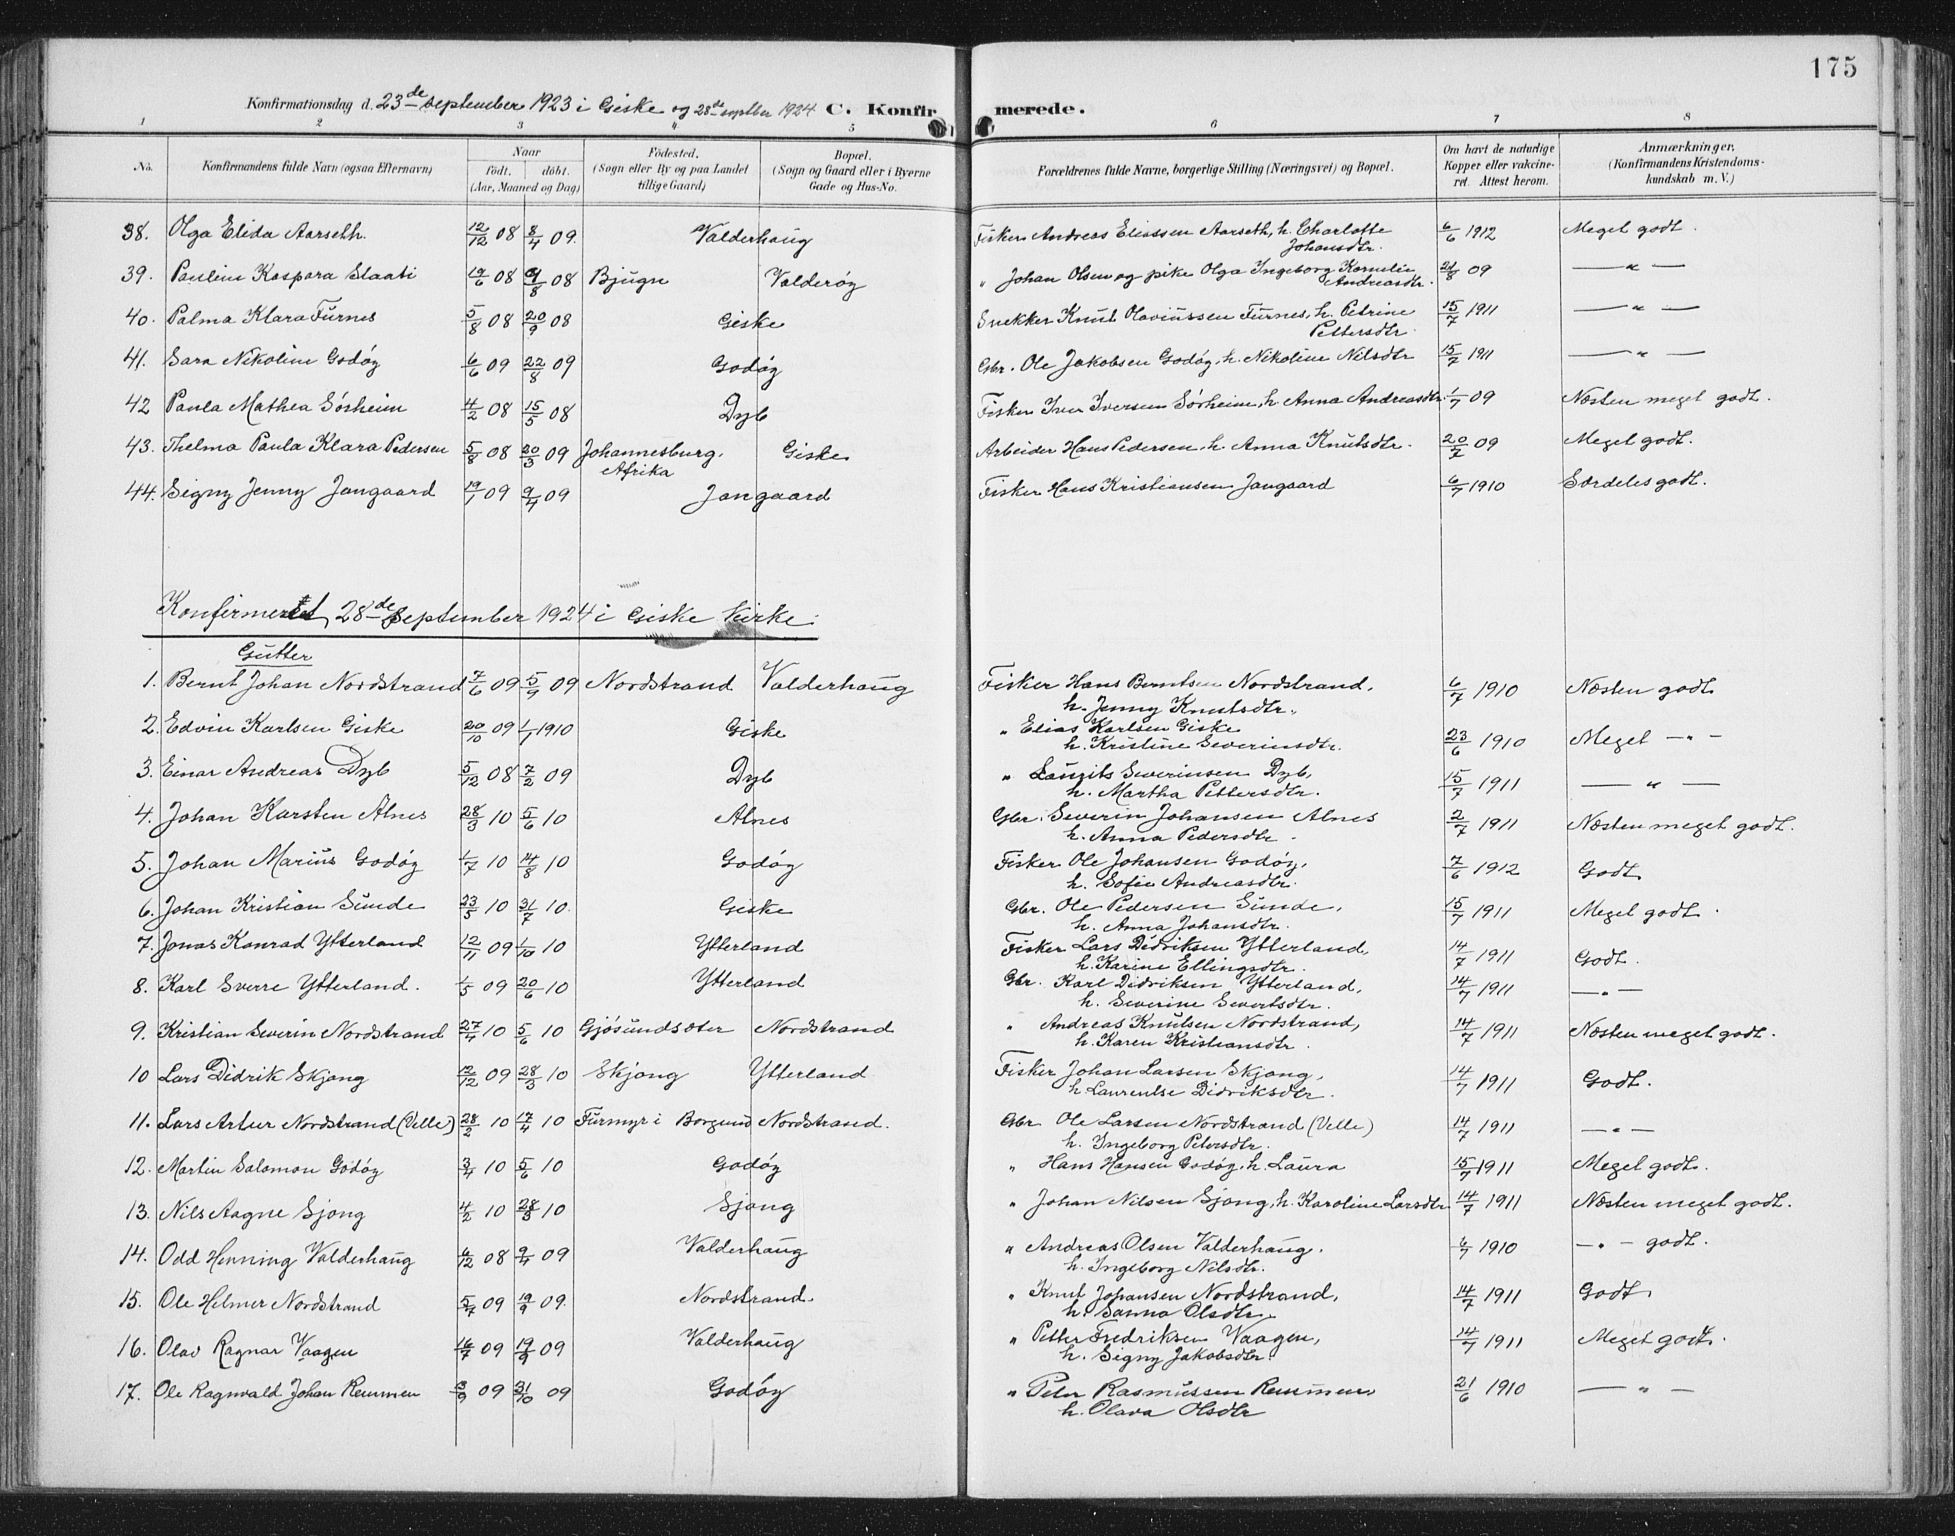 175
Konfirmationsdag d. 23de september 1923 i Giske og 28de septber 1924 C. Konfirmerede.
1 2 3 4 5 6 7 8
No. Konfirmandens fulde Navn (ogsaa Efternavn) Naar født. døbt. (Aar, Maaned og Dag) Fødested. (Sogn eller By og paa Landet tillige Gaard) Bopæl. (Sogn og Gaard eller i Byerne Gade og Hus-No. Forældrenes fulde Navne, borgerlige Stilling (Næringsvei) og Bopæl. Om havt de naturlige Kopper eller vakcineret. Attest herom. Anmærkninger. (Konfirmandens Kristendomskundskab m. V.)
38. Olga Elida Aarseth. 12/12 08 8/4 09. Valderhaug Fisker Andreas Eliassen Aarseth, h. Charlotte Johansdtr. 6/6 1912 Meget godt.
39. Pauline Kaspara Slaati 19/6 08 9/8 08 Bjugn Valderøy " Johan Olsen og pike Olga Ingeborg Kornelie Andreasdtr. 21/8 09 — " —
40. Palma Klara Furnes 5/8 08 20/9 08 Giske Snekker Knut Olaviussen Furnes, h. Petrine Pettersdtr. 15/7 1911 — " —
41. Sara Nikoline Godøy 6/6 09 22/8 09 Godøy Gbr. Ole Jakobsen Godøy, h. Nikoline Nilsdtr 15/7 1911 — " —
42 Paula Mathea Sørheim 4/2 08 15/5 08 Dyb Fisker Iver Iversen Sørheim, h. Anna Andreasdtr. 1/7 09 Næsten meget godt.
43. Thelma Paula Klara Pedersen 5/8 08 20/3 09 Johannesburg, Afrika Giske Arbeider Hans Pedersen, h. Anna Knutsdtr. 20/7 09 Meget godt.
44. Signy Jenny Jangaard 19/1 09 9/4 09 Jangaard Fisker Hans Kristiansen Jangaard 6/7 1910 Særdeles godt.
Konfirmeret 28de september 1924 i Giske Kirke.
Gutter
1. Bernt Johan Nordstrand 7/6 09 5/9 09 Nordstrand Valderhaug Fisker Hans Berntsen Nordstrand, h. Jenny Knutsdtr. 6/7 1910 Næsten godt
2. Edvin Karlsen Giske 20/10 09 1/1 1910 Giske " Elias Karlsen Giske h. Kristine Severinsdtr. 23/6 1910 Meget — " —
3. Einar Andreas Dyb 5/12 08 7/2 09 Dyb " Laurits Severinsen Dyb, h. Martha Pettersdtr. 15/7 1911 — " —
4. Johan Karsten Alnes 28/3 10 5/6 10 Alnes Gbr. Severin Johansen Alnes h. Anna Pedersdtr. 2/7 1911 Næsten meget godt.
5. Johan Marius Godøy 1/7 10 14/8 10 Godøy Fisker Ole Johansen Godøy, h. Sofie Andreasdtr. 7/6 1912 Godt
6. Johan Kristian Sunde 23/5 10 31/7 10. Giske Gbr. Ole Pedersen Sunde, h. Anna Johansdtr. 15/7 1911 Meget godt.
7. Jonas Konrad Ytterland 12/11 09 1/10 10 Ytterland Fisker Lars Didriksen Ytterland, h. Karine Ellingsdtr. 14/7 1911 Godt.
8. Karl Sverre Ytterland. 1/5 09 20/6 10 Ytterland Gbr. Karl Didriksen Ytterland, h. Severine Severtsdtr. 14/7 1911 — " —
9. Kristian Severin Nordstrand 27/4 10 5/6 10 Gjøsundsæter Nordstrand " Andreas Knutsen Nordstrand, h. Karen Kristiansdtr. 14/7 1911 Næsten meget godt.
10 Lars Didrik Skjong 12/12 09 28/3 10 Skjong Ytterland Fisker Johan Larsen Skjong, h. Laurentse Didriksdtr. 14/7 1911 Godt.
11. Lars Artur Nordstrand (Velle) 28/2 10 17/4 10 Furmyr i Borgund Nordstrand. Gbr. Ole Larsen Nordstrand (Velle) h. Ingeborg Petersdtr. 14/7 1911 — " —
12. Martin Salomon Godøy 3/4 10 5/6 10 Godøy " Hans Hansen Godøy, h. Laura 15/7 1911 Meget godt.
13. Nils Aagne Sjong 4/2 10 28/3 10 Sjong " Johan Nilsen Sjong, h. Karoline Larsdtr 14/7 1911 Næsten meget godt.
14. Odd Henning Valderhaug 6/12 08 9/4 09 Valderhaug " Andreas Olsen Valderhaug, h. Ingeborg Nilsdtr. 6/7 1910 — " — godt.
15. Ole Helmer Nordstrand 5/7 09 19/9 09. Nordstrand. " Knut Johansen Nordstrand, h. Sanna Olsdtr. 14/7 1911 Godt
16. Olav Ragnar Vaagen 16/7 09 19/9 09 Valderhaug " Petter Fredriksen Vaagen, h. Signy Jakobsdtr. 14/7 1911 Meget godt.
17. Ole Ragnvald Johan Remmen 3/9 09 31/10 09 Godøy " Peter Rasmussen Remmen h. Olava Olsdtr 21/6 1910 — " —